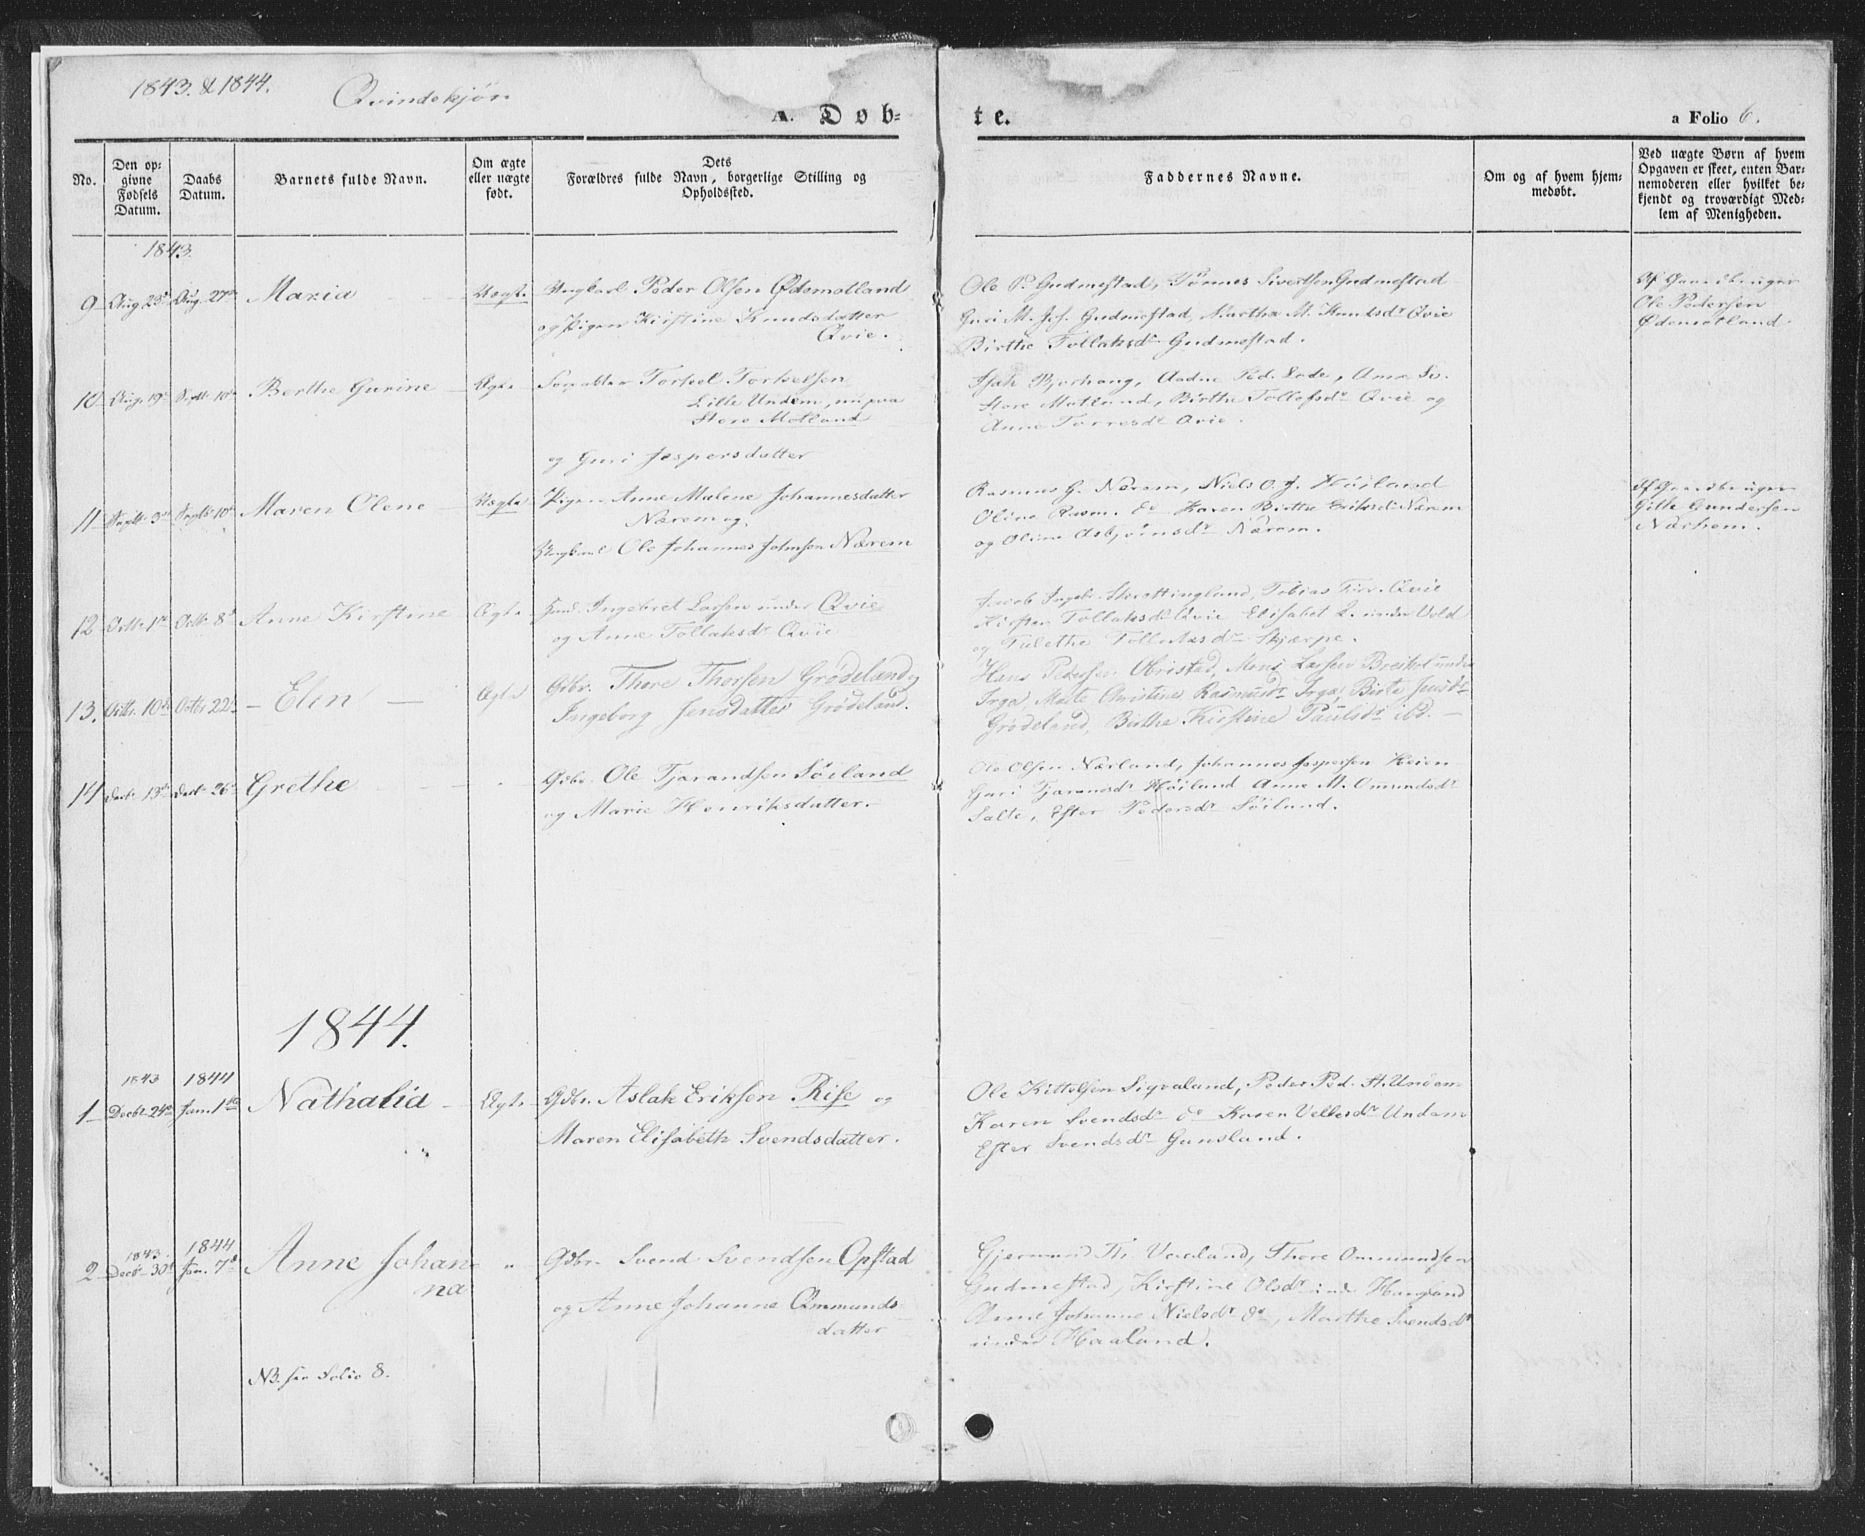 1843 & 1844.
Qvindekjøn
A. Døb=
te.
a Folio 6.
No.
Den op=
givne
Fødsels
Datum.
Daabs
Datum.
Barnets fulde Navn.
Om ægte
eller uægte
født.
Dets
Forældres fulde Navn, borgerlige Stilling og
Opholdssted.
Faddernes Navne.
Om og af hvem hjem=
medøbt.
Ved uægte Børn af hvem
Opgaven er skeet, enten Bar=
nemoderen eller hvilket be=
kjendt og troværdigt Med=
lem af Menigheden.
1843.
9 Aug. 23d Aug. 27de Maria Uægte Ungkarl Peder Olsen Ødemotland
og Pigen Kirstine Knudsdatter
Qvie.
Ole P. Gudmestad, Tønnes Sivertsen Gudmestad
Guri M. Joh. Gudmestad, Martha M. Knudsdr Qvie
Birthe Tollaksdr Gudmestad.
Af Gaardbruger
Ole Pedersen
Ødemotland.
10 Aug. 19de Septbr 10de Berthe Gurine Ægte Torkel Torkelsen
Lille Undem, nu paa
Store Motland
og Guri Jespersdatter
Bjorhaug, Aadne Ped. Lode,
Store Motland, Birthe Tollefsdr Qvie og
Anne Torresdr Qvie.
11 Septbr 3de Septbr 10de Maren Olene Uægte Pigen Anne Malene Johannesdatter
Nærem og
Ungkarl Ole Johannes Johnsen Nærem
Rasmus G. Nærem, Niels O. J. Høiland
Oline Rasm. do Karen Birthe Eriksdr Nærem
og Oline Asbjørnsdr Nærem.
Af Gaardbruger
Gitle Gundersen
Nærhem.
12 Octbr 1ste Octbr 8de Anne Kirstine Ægte Ingebret Larsen under Qvie
og Anne Tollaksdr Qvie
Jacob Ingebr. Tobias Torr. Qvie
Kirsten Tollaksdr Qvie Elisabet L. under Vold
og Tollaksdr Skjærpe.
13. Octbr. 10de Octbr 22de - Elen - Ægte Gbr. Thore Thorsen Grødeland og
Ingeborg Jensdatter Grødeland.
Hans Pedersen Obristad, Mons Larsen under
Irga, Christine Rasmusdr Irga, Birte Jensdr
Grødeland, Birthe Kirstine Paulsdr ibd. -
14 Decbr 13de Decbr 26de Grethe Gdbr. Ole Tjærandsen Søiland
og Marie Henriksdatter.
Ole Olsen Nærland, Johannes Jespersen Heien
Guri Tjæransdr Høiland Anne M. Omundsdr
Salte, Efter Pedersdr Søiland.
1844.
1843 1844
1 Decbr 24de Jan. 1ste Nathalia - Ægte Gdbr. Aslak Eriksen Rise og
Maren Elisabeth Svendsdatter.
Ole Kittelsen Sigvaland, Peder Ped. St. Undem
Karen Svendsdr do Karen Undem
Efter Svendsdr Gausland.
1843. 1844
2 Decbr 30te Jan. 7de Anne Johan=
na
" Gdbr. Svend Svendsen Opstad
og Anne Johanne Ommunds=
datter
Gjermund Th. Varland, Thore Ommundsen
Gudmestad, Kirstine Olsdr
Anne Johanne Nielsdr do, Marthe Svendsdr
under Haaland.
NB. see Folio 8.